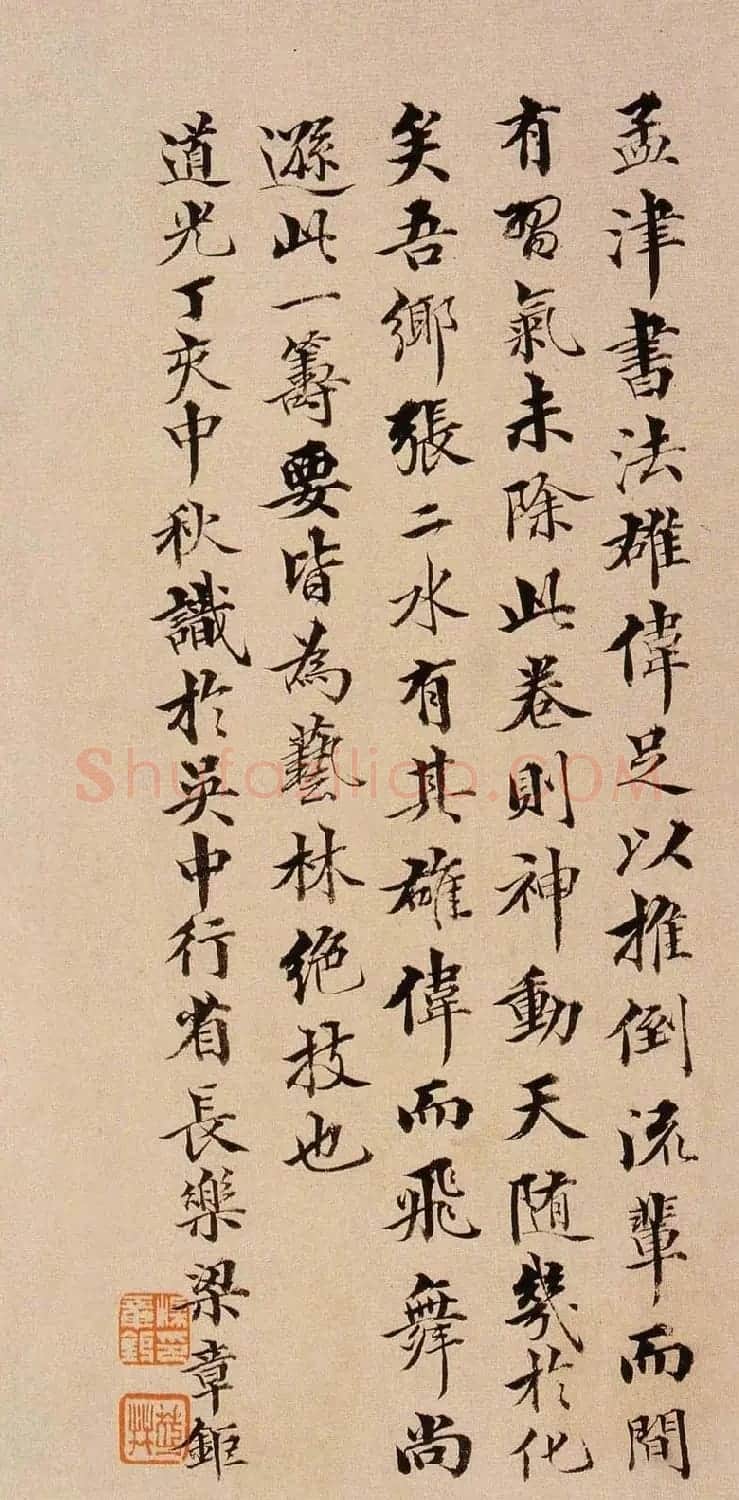 孟津書法雄偉足以推倒流輩而間
有習氣未除此卷則神動天随幾於化
矣吾鄉張二水有其雄偉而飛舞尚
遜此一籌要皆為藝林絶技也
道光丁亥中秋識於吳中行省長樂梁章鉅